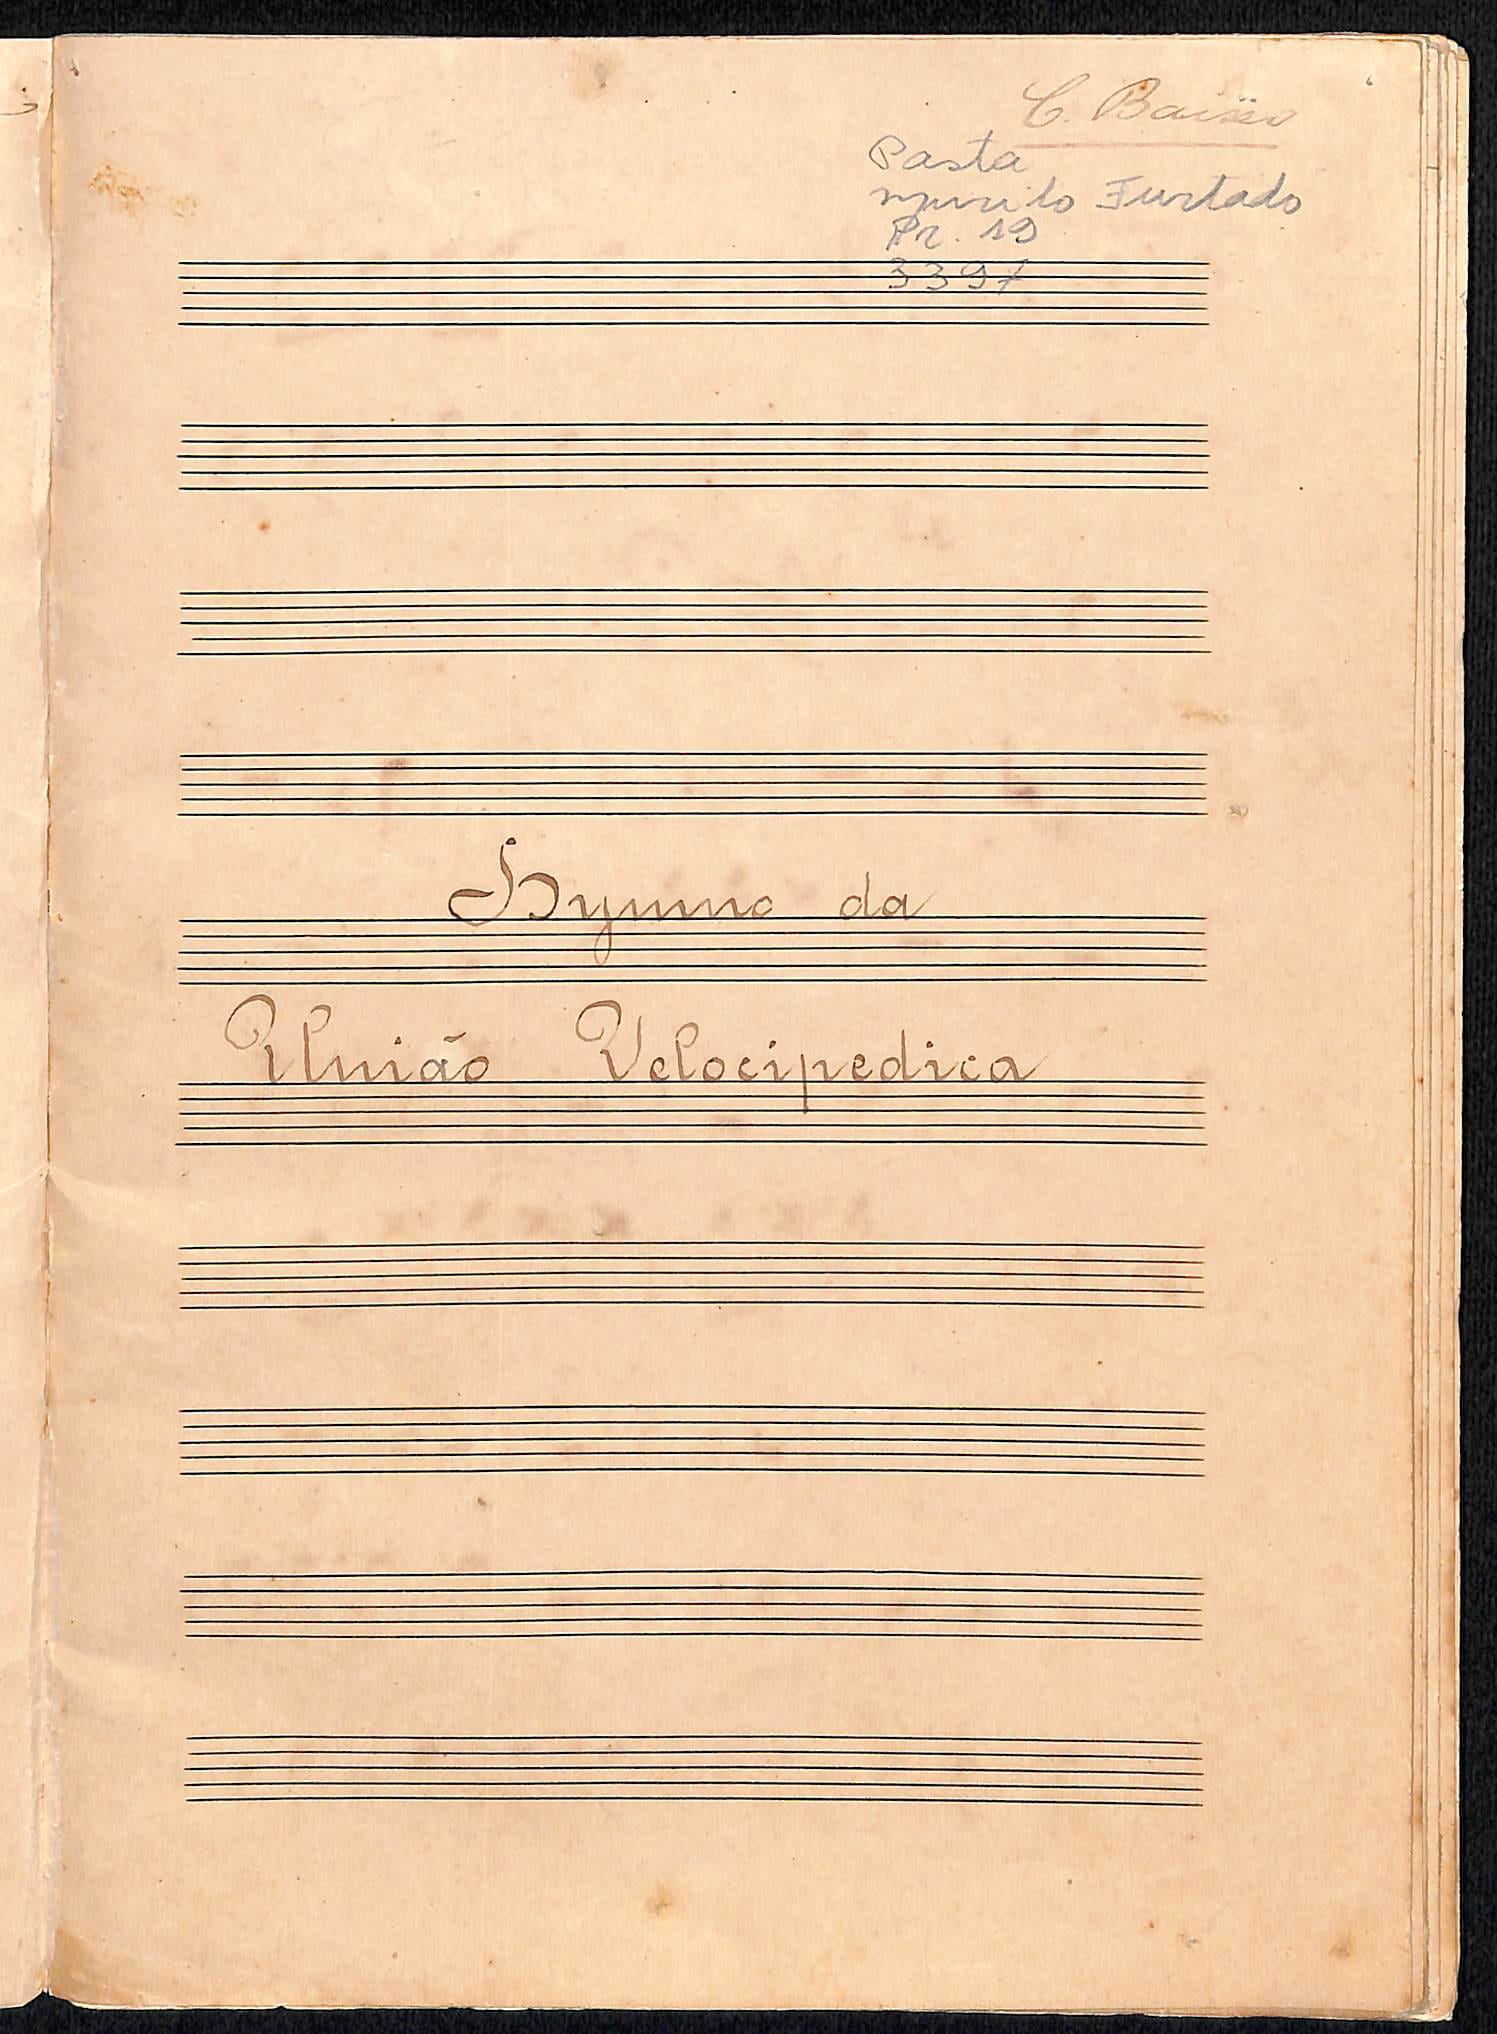 C. Baixo
Pasta
murilo Furtado
Pr. 19
3397
Hymno da
União Velocipedica